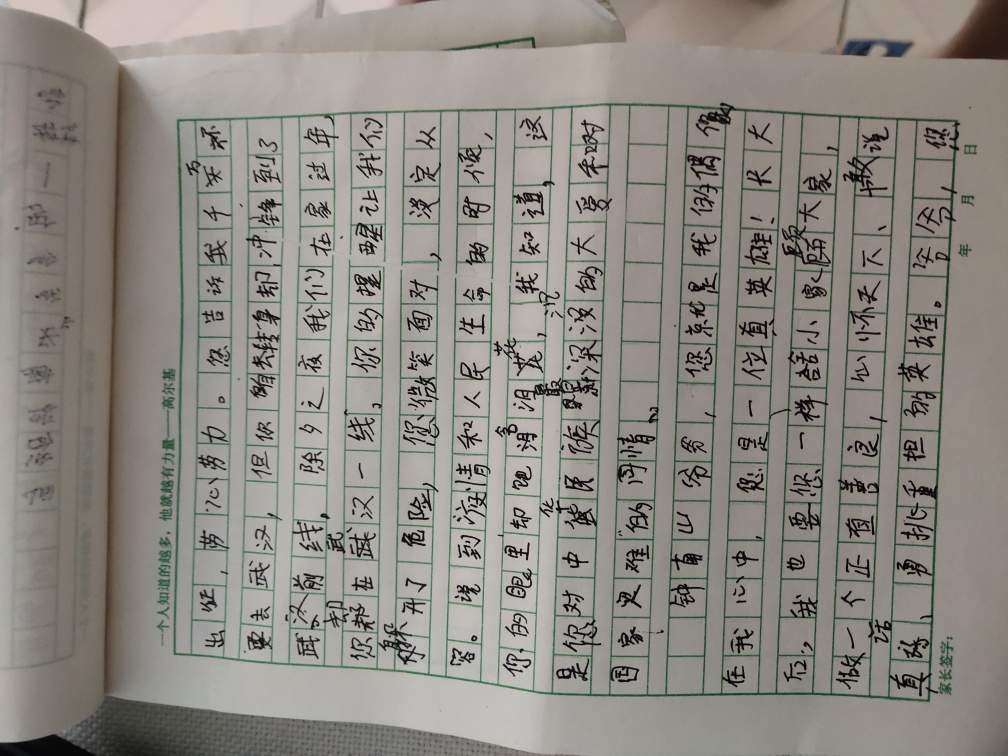 一个人知道的越多，他就越有力量——高尔基
出征，劳心劳力。您告诉我千万不
要去武汉，但你自己转身却冲锋到了
武汉前线，除夕之夜我们在家过年，
你却在武汉一线，你的提醒让我们
躲开了危险，您微笑面对，淡定从
容。说到疫情和人民生命的时候，
你的眼里却饱含泪花，我知道，这
是你对中华民族深沉的大爱和对
国家灾难的同情。
钟南山爷爷，您就是我的偶像
在我心中，您是一位真英雄！长大
后，我也要像您一样舍小家，顾大家，
做一个正直善良，心怀天下、敢说
真话、勇挑重担的英雄。爷爷，您
家长签字：
年 月 日